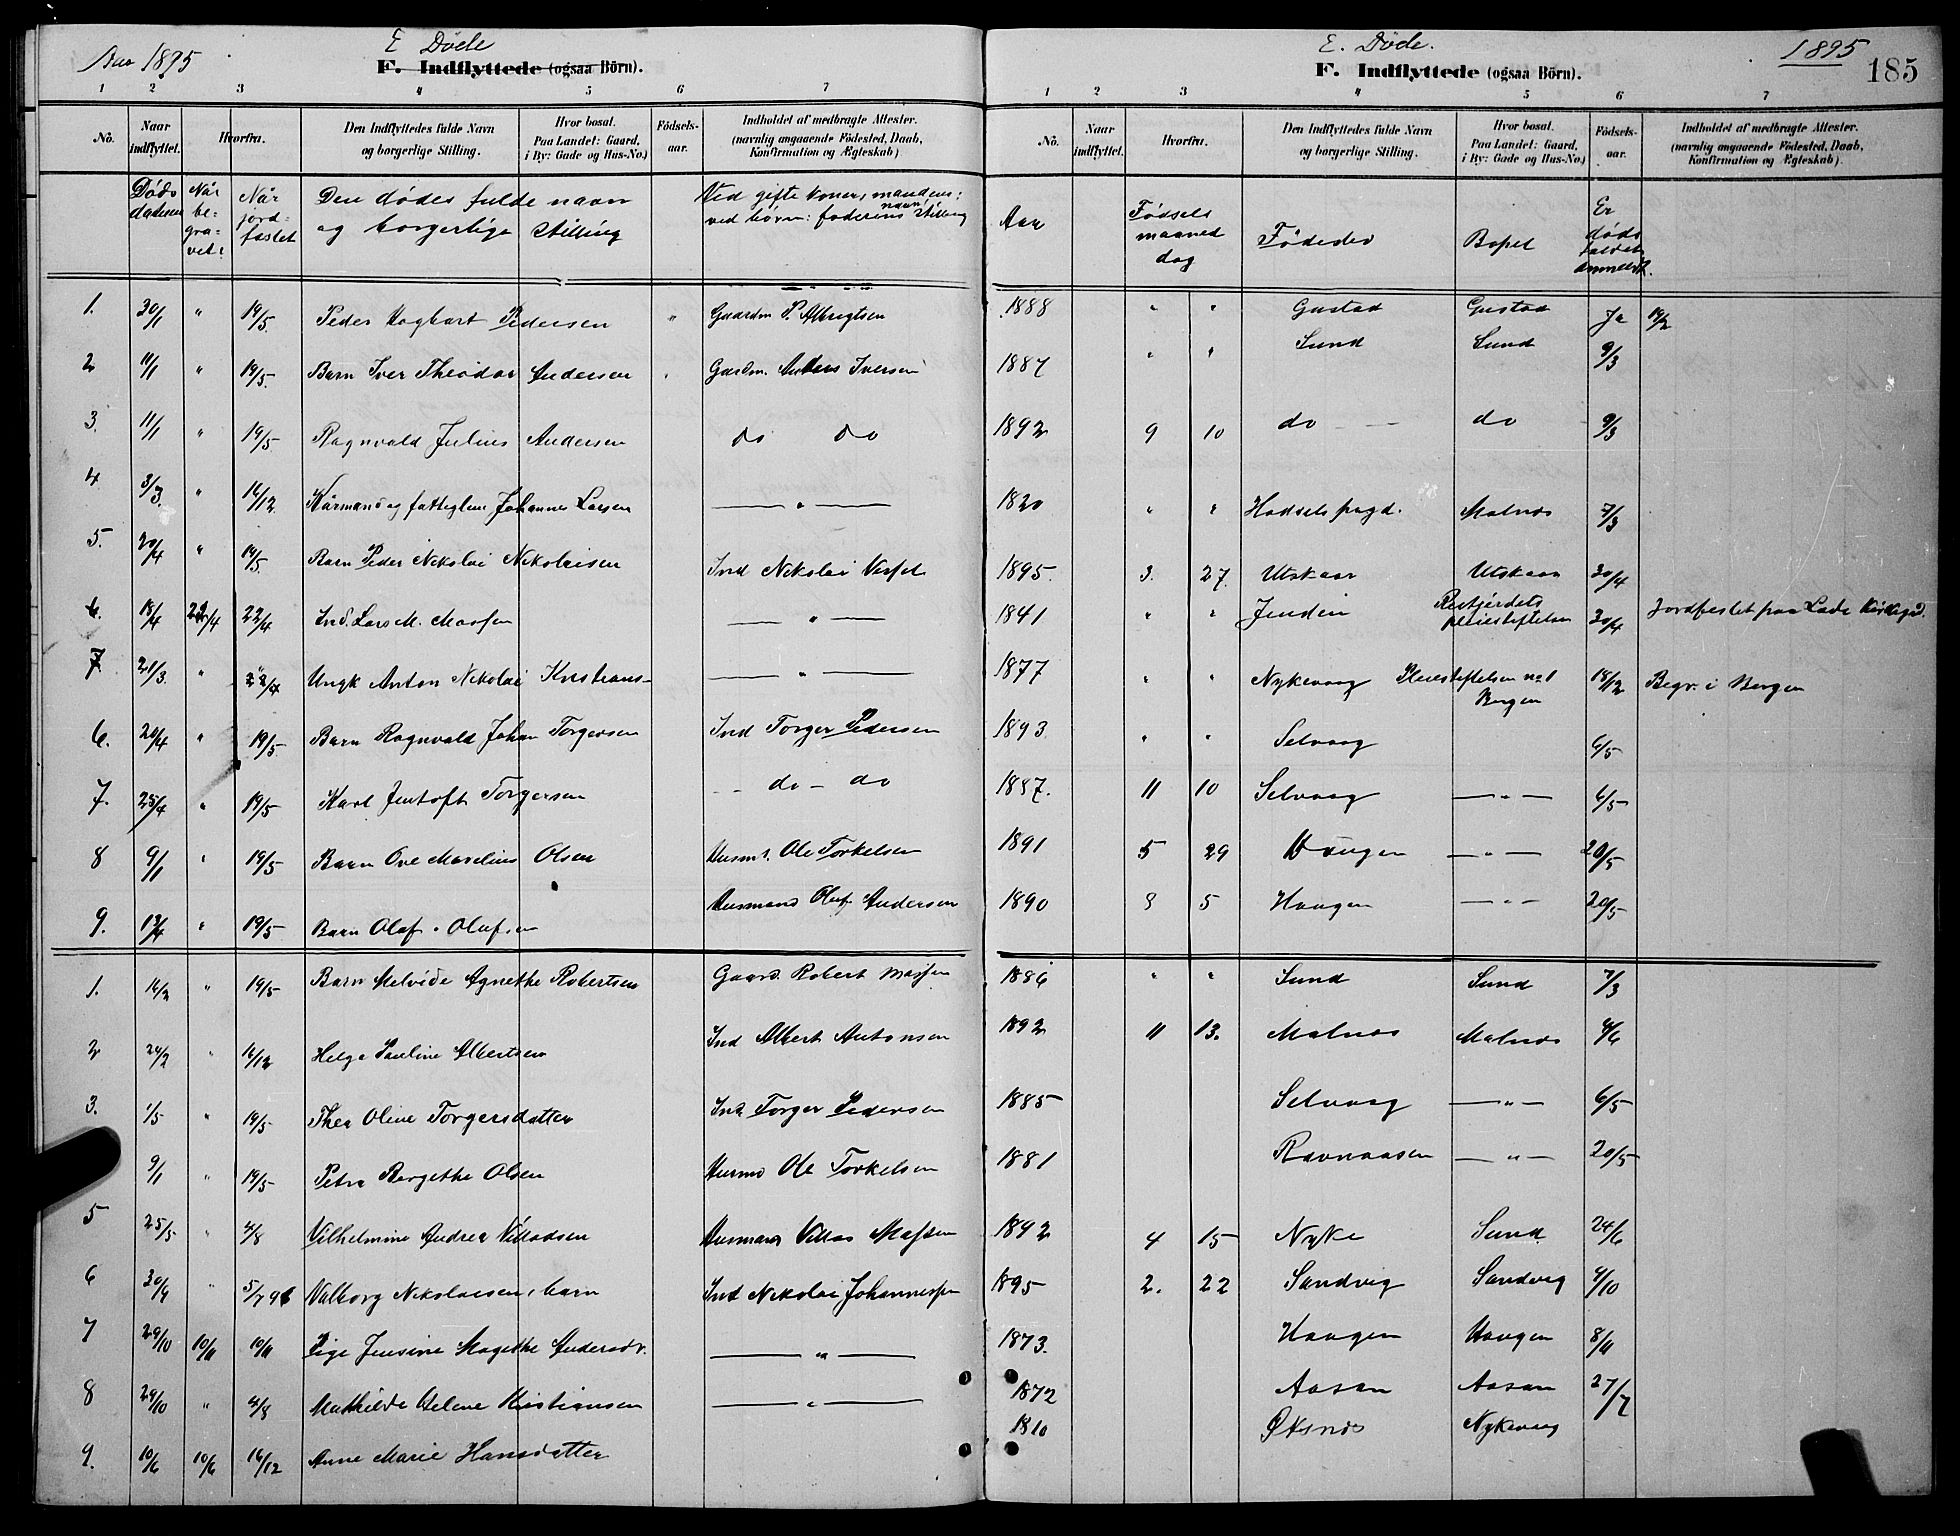 Aar 1895
E Døde
F. Indflyttede (ogsaa Börn).
1 2 3 4 5 6 7
No. Naar indflyttet. Hvorfra. Den Indflyttedes fulde Navn og borgerlige Stilling. Hvor bosat. Paa Landet: Gaard, i By: Gade og Hus-No.) Födsels-aar. Indholdet af medbragte Attester. (navnlig angaaende Födested, Daab, Konfirmation og Ægteskab)
Døds datoen Når be-gra-vet: Når jord-fæstet Den dødes fulde navn og borgerlige stilling Ved gifte koner, mandens: ved børn: faderens navn stilling
1. 30/1 " 19/5 Peder Hagbart Pedersen " Gaardm P. Albrigtsen
2 11/1 " 19/5. Barn Iver Theodor Andersen Gaardm. Anders Iversen
3. 11/1 " 19/5 Ragnvald Julius Andersen do do
4 3/3. " 16/12 Kårmand og fattiglem Johannes Larsen — " —
5. 20/4 " 19/5. Barn Peder Nikolai Nikolaisen Ind Nikolai
6. 18/4 22/4 22/4 Ind. Lars M. — " —
7. 21/3. " 22/4 Ungk Anton Nikolai Kristians- — " —
6. 20/4 " 19/5. Barn Ragnvald Johan Torgersen Ind Torger Pedersen
7. 25/4 " 19/5 Karl Jentoft Torgersen do - do
8 9/1 " 19/5 Barn Ove Marelius Olsen Husm. Ole Torkelsen
9. 13/4 " 19/5 Barn Olaf Olufsen Husmand Oluf Andersen
1. 16/2 " 19/5 Barn Melvide Agnethe Robertsen Gaard. Robert
2 24/2 " 16/12 Helga Pauline Albertsen Ind Albert Antonsen
3. 1/5 " 19/5 Thea Oline Torgersdatter Ind Torger Pedersen
9/1 " 19/5 Petra Bergethe Olsen Husmd Ole Torkelsen
5 25/5 " 4/8 Vilhelmine Andrea Villadsen Husmand Villas
6 30/9 " 5/7 96 Valborg Nikolaisen, barn Ind Nikolai Johannessen
7 29/10 10/11 10/11 Pige Jensine Magethe Andersdr. — " —
8 29/10 " 4/8 Mathilde Helene Kristiansen — " —
9. 10/6 10/6 16/12 Anne Marie Hansdatter
E. Døde.
1895
185
F. Indflyttede (ogsaa Börn).
1 2 3 4 5 6 7
No. Naar indflyttet. Hvorfra. Den Indflyttedes fulde Navn og borgerlige Stilling. Hvor bosat. Paa Landet: Gaard, i By: Gade og Hus-No.) Födsels-aar. Indholdet af medbragte Attester. (navnlig angaaende Födested, Daab, Konfirmation og Ægteskab).
Aar Fødsels maaned dag Fødested Bopel Er døds faldet anmeldt.
1888 " " Gustad Gustad Ja 19/2
1887 " " Sund Sund 9/3
1892 9 10 do - - do 9/3
1820 " " Hadsels pgd. Malnes 7/3
1895. 3. 27. Utskaar Utskaar 30/4
1841 " " pleiestiftelse 30/4 Jordfestet paa Lade Kirkegd.
1877 " " Nykevaag Pleiestiftelsen No 1 Bergen 18/12 Begr. i Bergen
1893 " " Selvaag 6/5
1887. 11 10 Selvaag — " — 6/5
1891 5 29 Haugen — " — 20/5
1890 8 5 Haugen — " — 20/5
1886 " " Sund Sund 7/3
1892 11 13. Malnes Malnes 4/6
1885 Selvaag — " — 6/5
1881 Ravnaasen — " — 20/5
1892 4 15 Nyke Sund 24/6
1895 2. 22 Sandvig Sandvig 4/10
1873. Haugen Haugen 8/11
1872 Aasan Aasan 27/7
1810 Øksnes Nykevaag